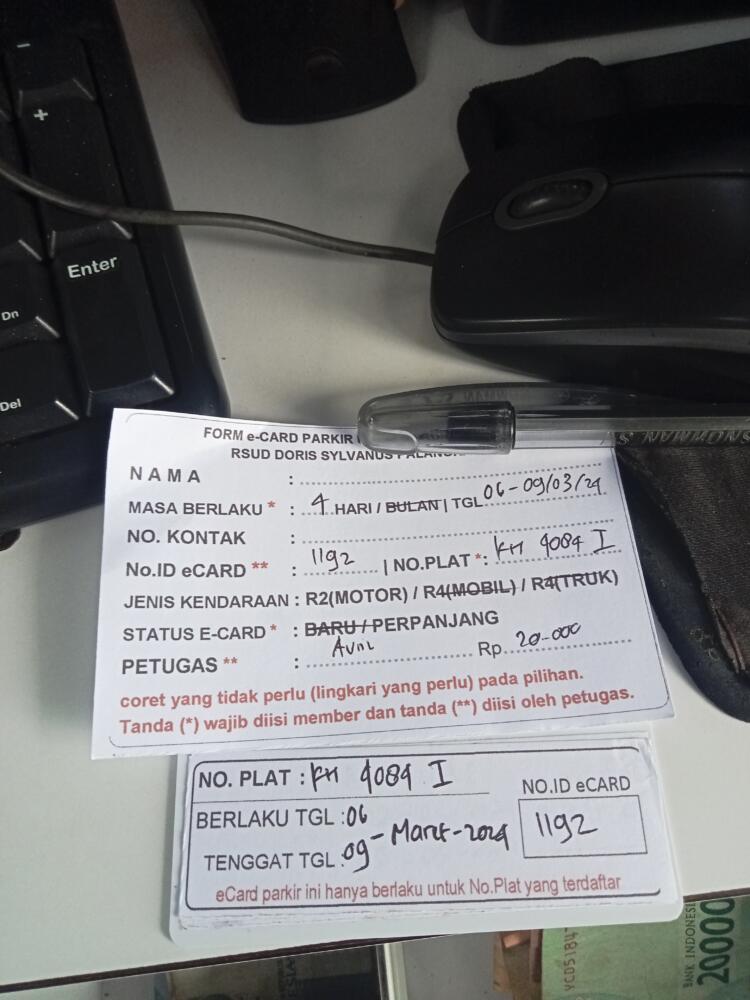 -
+
Enter
Dn
Del
FORM e-CARD PARKIR
RSUD DORIS SYLVANUS
N A M A :
MASA BERLAKU * : 4 HARI / BULAN | TGL 06-09/03/24
NO. KONTAK :
No.ID eCARD ** : 1192 | NO.PLAT *: KH 4084 I
JENIS KENDARAAN : R2(MOTOR) / R4(MOBIL) / R4(TRUK)
STATUS E-CARD * : BARU / PERPANJANG
PETUGAS ** : Rp. 20-000
coret yang tidak perlu (lingkari yang perlu) pada pilihan.
Tanda (*) wajib diisi member dan tanda (**) diisi oleh petugas.
NO. PLAT : KH 4084 I
NO.ID eCARD
1192
BERLAKU TGL : 06
TENGGAT TGL : 09 - Maret - 2024
eCard parkir ini hanya berlaku untuk No.Plat yang terdaftar
SNOWMAN
BANK INDONESI
20000